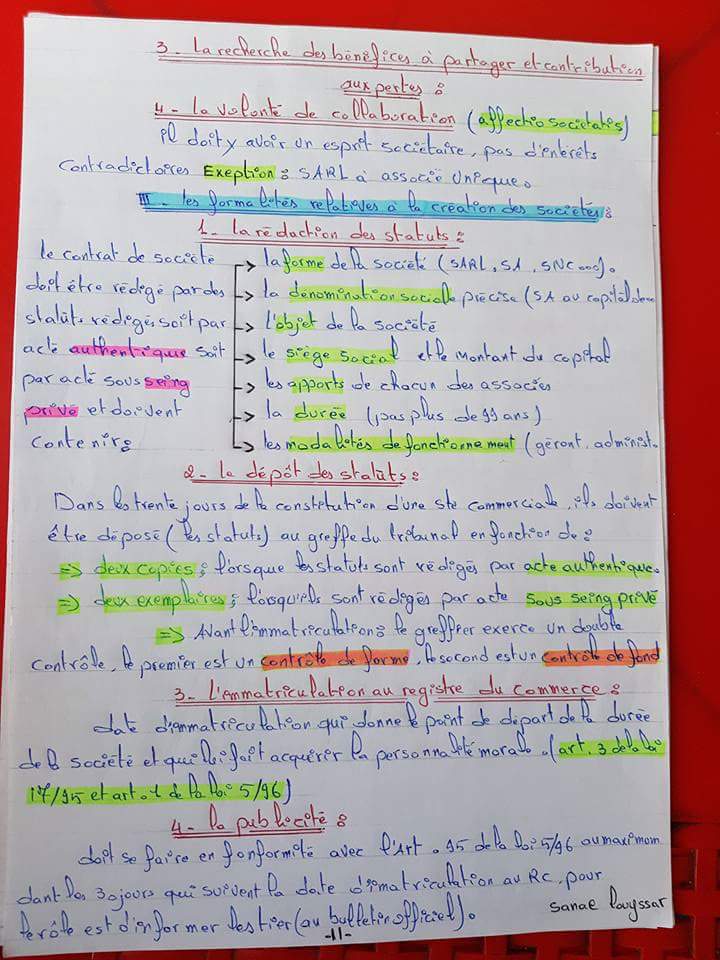 3 - La recherche des bénéfices à partager et contribution
aux pertes :
4 - la volonté de collaboration (affectio societatis)
il doit y avoir un esprit sociétaire, pas d'intérêts
contradictoires Exeption : SARL à associé unique.
III - les formalités relatives à la création des sociétés :
1 - la rédaction des statuts :
le contrat de société
doit être rédigé par des
statuts rédigés soit par
acté authentique soit
par acté sous seing
privé et doivent
contenir :
la forme de la société (SARL, SA, SNC...).
la dénomination sociale précise (SA au capital de...
l'objet de la société
le siège social et le montant du capital
les apports de chacun des associés
la durée (pas plus de 99 ans)
les modalités de fonctionnement (gérant, administ.
2 - le dépôt des statuts :
Dans les trente jours de la constitution d'une sté commerciale, ils doivent
être déposé (les statuts) au greffe du tribunal en fonction de :
=> deux copies ; lorsque les statuts sont rédigés par acte authentique.
=> deux exemplaires ; lorsqu'ils sont rédigés par acte sous seing privé
=> Avant l'immatriculation : le greffier exerce un double
contrôle, le premier est un contrôle de forme, le second est un contrôle de fond
3 - L'immatriculation au registre du commerce :
date d'immatriculation qui donne le point de départ de la durée
de la société et qui lui fait acquérir la personnalité morale. (art. 3 de la loi
17/95 et art. 1 de la loi 5/96)
4 - la publicité :
doit se faire en fonformité avec l'Art. 95 de la loi 5/96 au maximom
dant les 30 jours qui suivent la date d'imatriculation au RC, pour
le rôle est d'informer les tier (au bulletin officiel).
sanae louyssar
-11-